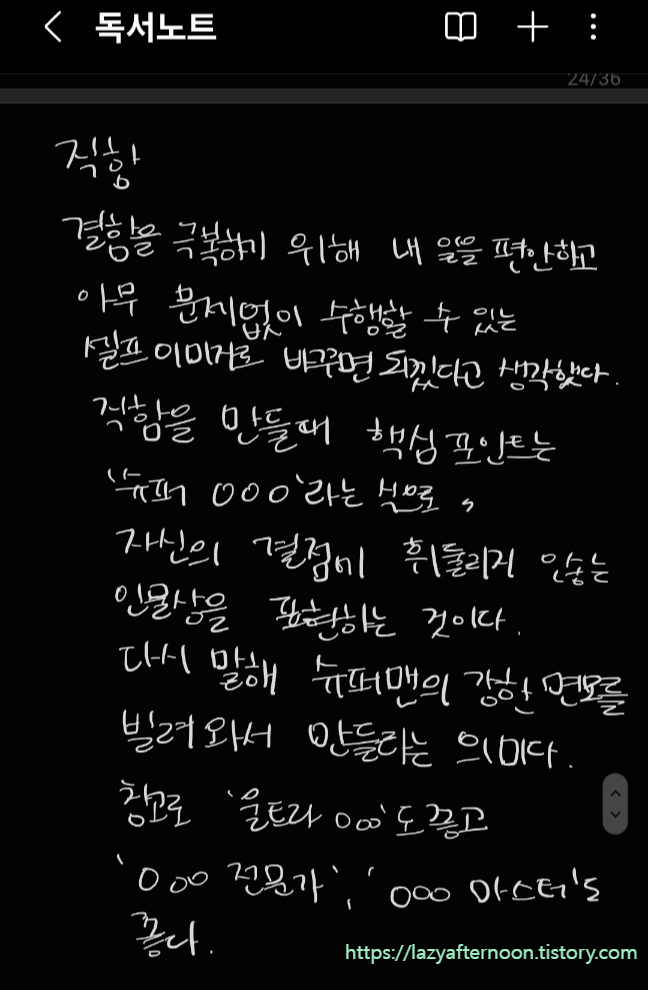 독서노트
24/36
직함
결함을 극복하기 위해 내 일을 편안하고
아무 문제없이 수행할 수 있는
셀프이미지로 바꾸면 되겠다고 생각했다.
직함을 만들때 핵심포인트는
'슈퍼 OOO'라는 식으로,
자신의 결점에 휘둘리지 않는
인물상을 표현하는 것이다.
다시 말해 슈퍼맨의 강한 면모를
빌려와서 만들라는 의미다.
참고로 '울트라 OOO'도 좋고
'OOO 전문가', 'OOO 마스터'도
좋다.
https://lazyafternoon.tistory.com